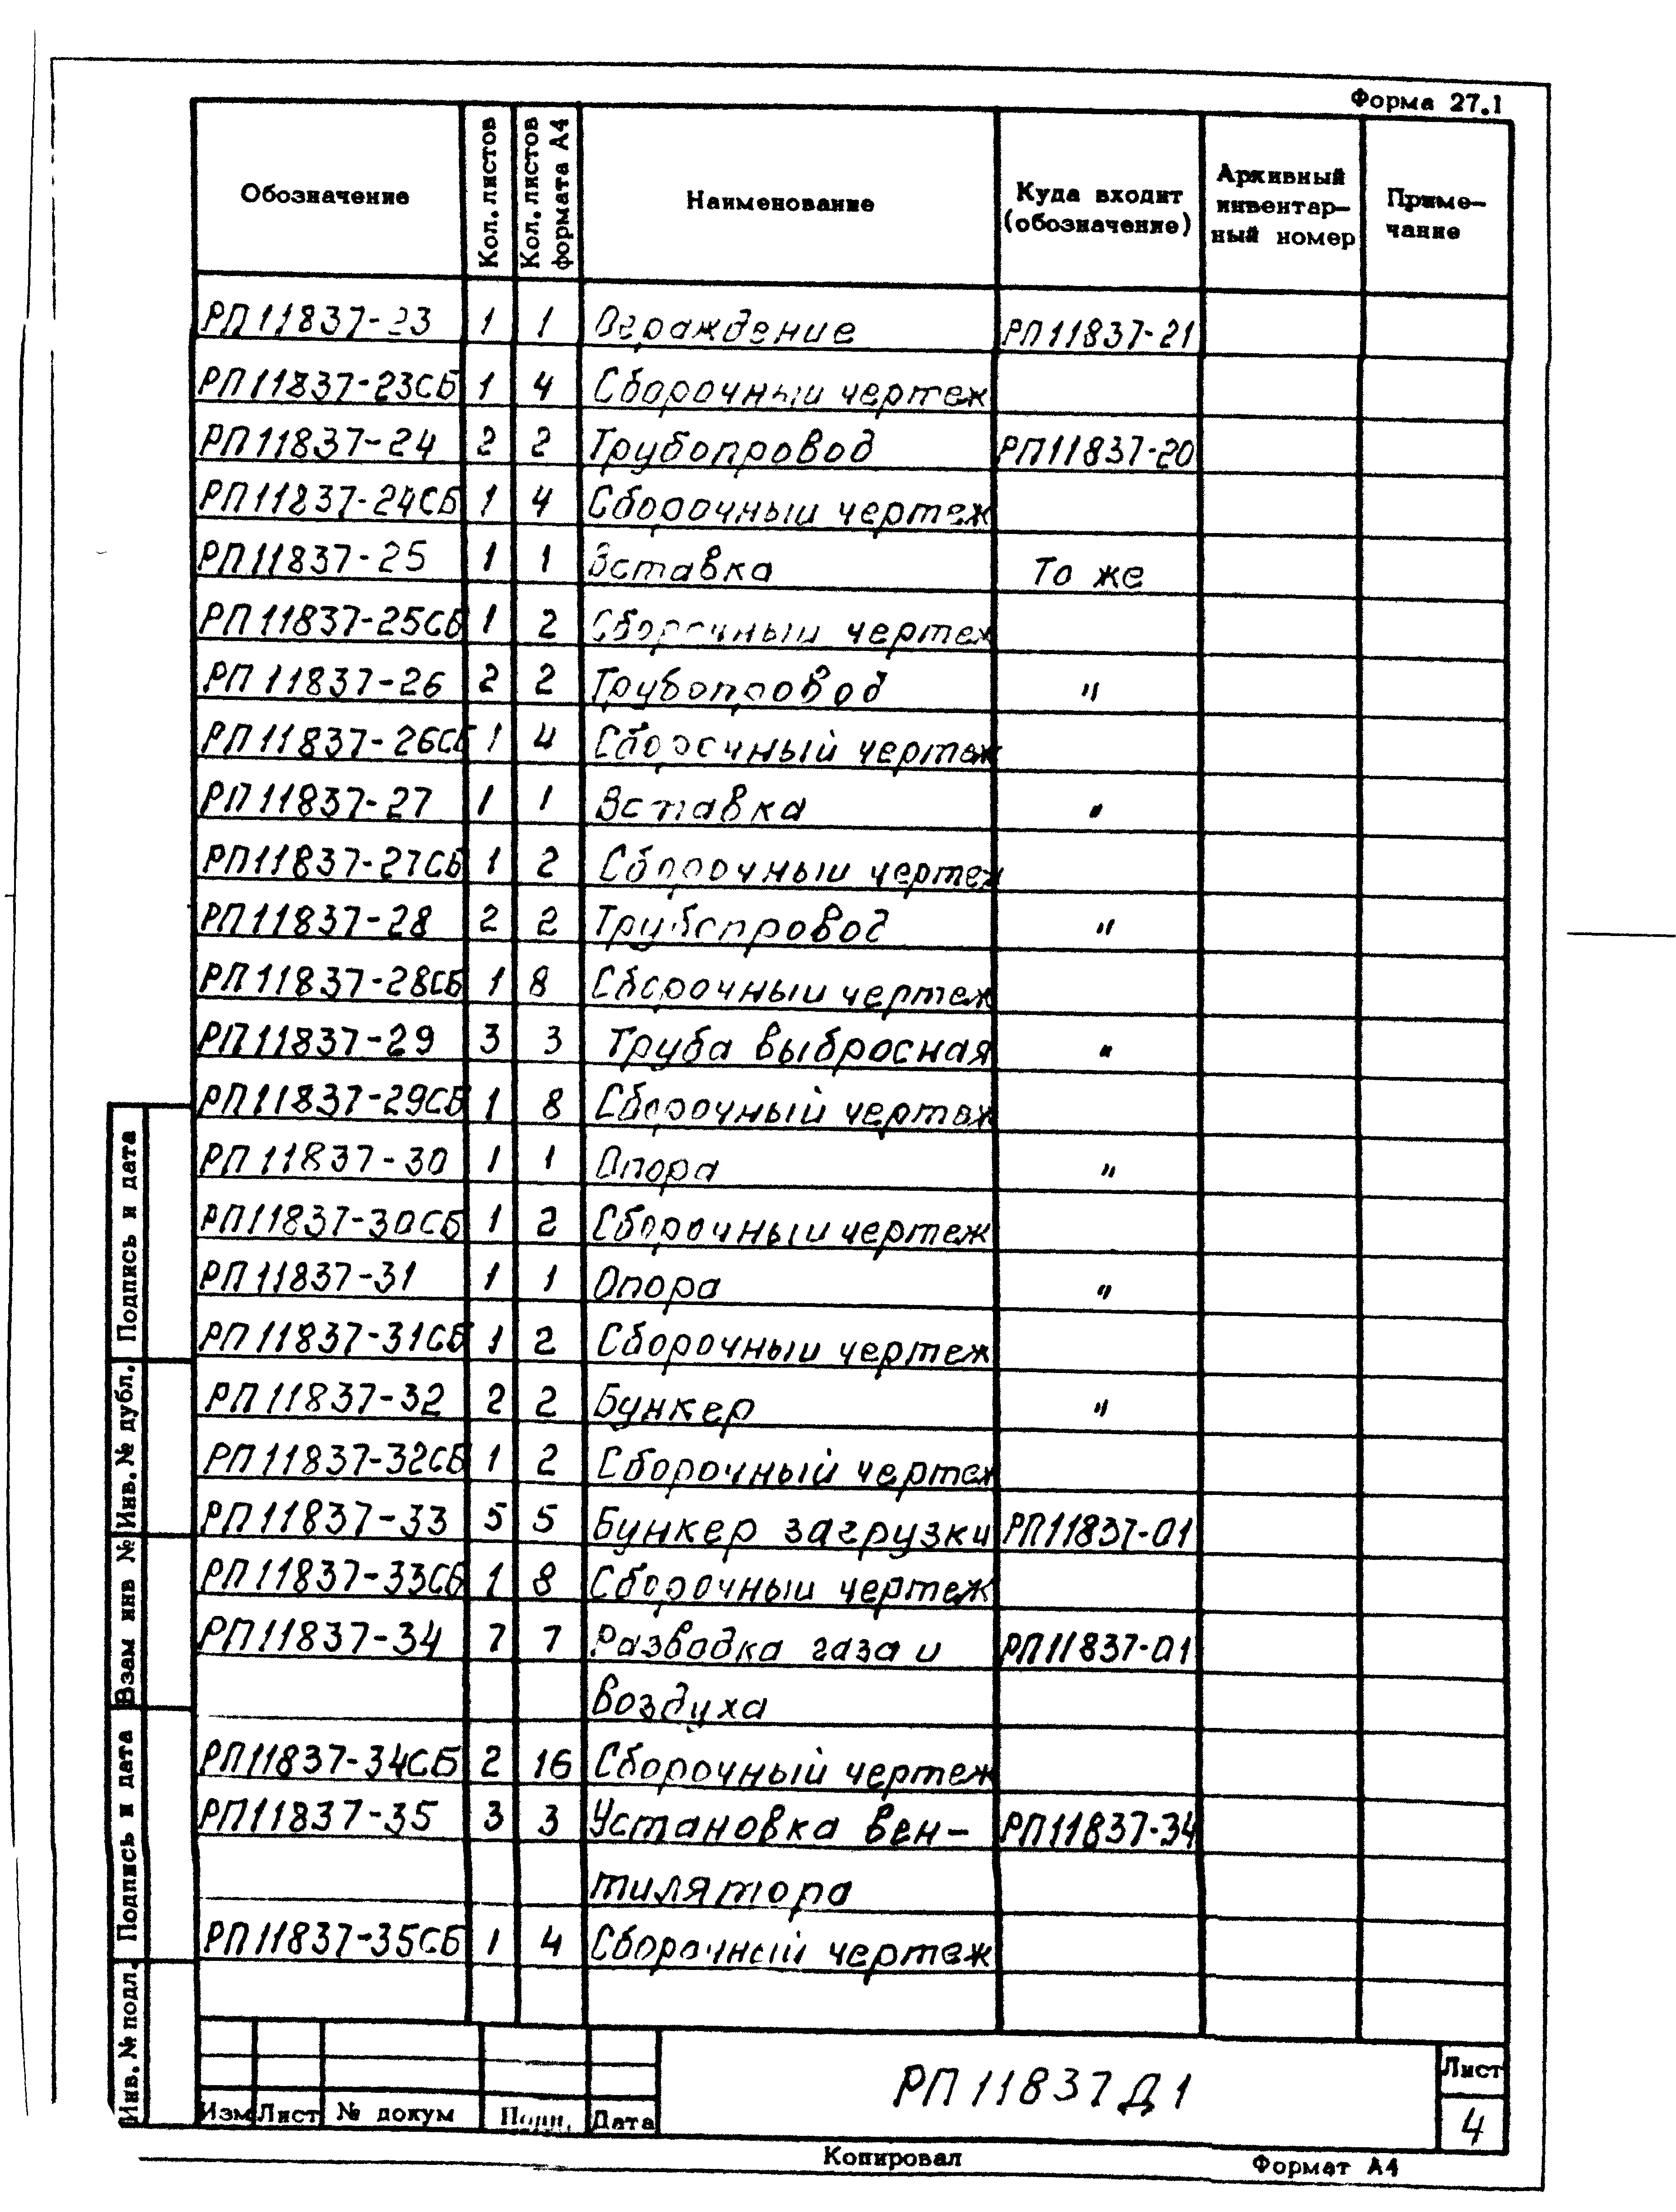 Форма 27.1
Обозначение Кол. листов Кол. листов формата А4 Наименование Куда входит (обозначение) Архивный инвентар-ный номер Приме-чание
РП11837-23 1 1 Ограждение РП11837-21
РП11837-23СБ 1 4 Сборочный чертеж
РП11837-24 2 2 Трубопровод РП11837-20
РП11837-24СБ 1 4 Сборочный чертеж
РП11837-25 1 1 Вставка То же
РП11837-25СБ 1 2 Сборочный чертеж
РП11837-26 2 2 Трубопровод "
РП11837-26СБ 1 4 Сборочный чертеж
РП11837-27 1 1 Вставка "
РП11837-27СБ 1 2 Сборочный чертеж
РП11837-28 2 2 Трубопровод "
РП11837-28СБ 1 8 Сборочный чертеж
РП11837-29 3 3 Труба выбросная "
РП11837-29СБ 1 8 Сборочный чертеж
РП11837-30 1 1 Опора "
РП11837-30СБ 1 2 Сборочный чертеж
РП11837-31 1 1 Опора "
РП11837-31СБ 1 2 Сборочный чертеж
РП11837-32 2 2 Бункер "
РП11837-32СБ 1 2 Сборочный чертеж
РП11837-33 5 5 Бункер загрузки РП11837-01
РП11837-33СБ 1 8 Сборочный чертеж
РП11837-34 7 7 Разводка газа и РП11837-01
воздуха
РП11837-34СБ 2 16 Сборочный чертеж
РП11837-35 3 3 Установка вен- РП11837-34
тилятора
РП11837-35СБ 1 4 Сборочный чертеж
Подпись и дата
Инв. № дубл.
Взам инв №
Подпись и дата
Инв. № подл.
Изм Лист № докум Подп. Дата
РП11837Д1
Лист
4
Копировал
Формат А4